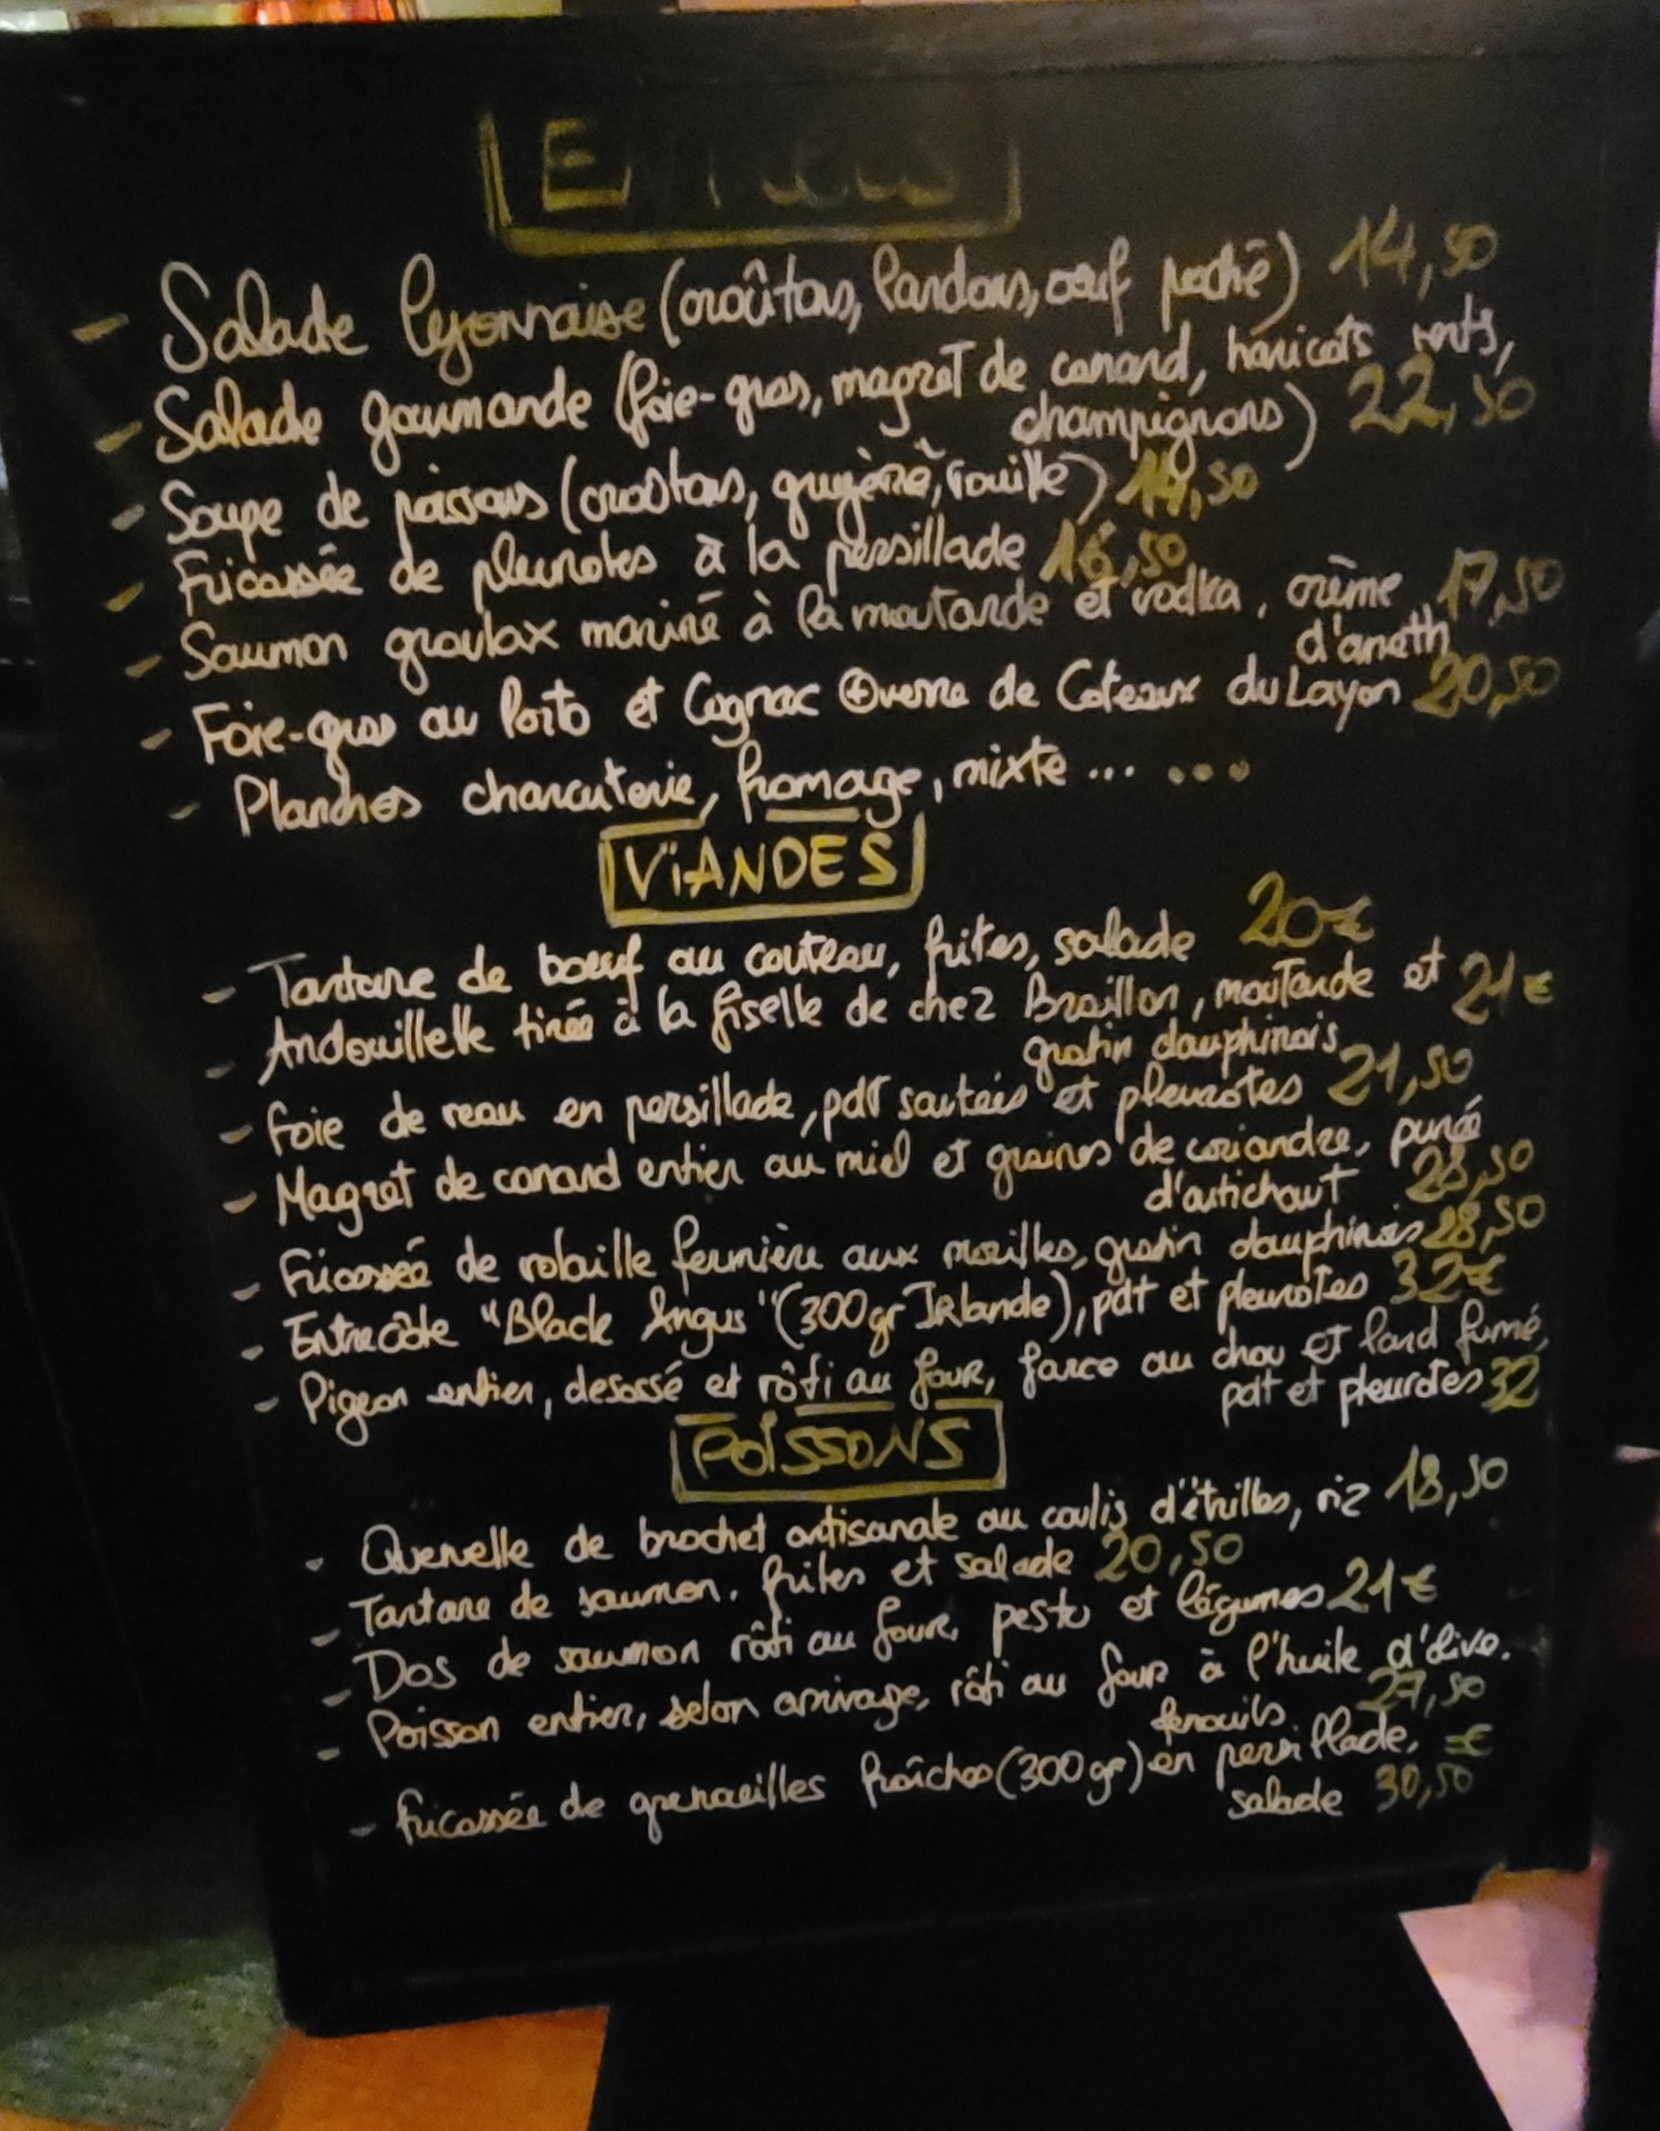 - Salade lyonnaise (croûtons, lardons, œuf poché) 14,50
- Salade gourmande (foie-gras, magret de canard, haricots verts,
champignons) 22,50
- Soupe de poissons (croûtons, gruyère, rouille) 14,50
- Fricassée de pleurotes à la persillade 16,50
- Saumon gravlax mariné à la moutarde et vodka, crème 17,50
d'aneth
- Foie-gras au Porto et Cognac + verre de Coteaux du Layon 20,50
- Planches charcuterie, fromage, mixte ... ...
ViANDES
- Tartare de bœuf au couteau, frites, salade 20€
- Andouillette tirée à la fiselle de chez Braillon, moutarde et 21€
gratin dauphinois
- Foie de veau en persillade, pdt sautées et pleurotes 21,50
- Magret de canard entier au miel et graines de coriandre, purée
d'artichaut 28,50
- Fricassée de volaille fermière aux morilles, gratin dauphinois 28,50
- Entrecôte "Black Angus" (300gr IRlande), pdt et pleurotes 32€
- Pigeon entier, desossé et rôti au four, farce au chou et lard fumé,
pdt et pleurotes 32
POiSSONS
- Quenelle de brochet artisanale au coulis d'étrilles, riz 18,50
- Tartare de saumon, frites et salade 20,50
- Dos de saumon rôti au four, pesto et légumes 21€
- Poisson entier, selon arrivage, rôti au four à l'huile d'olive.
fenouils 27,50
- Fricassée de grenouilles fraîches (300gr) en persillade, €
salade 30,50